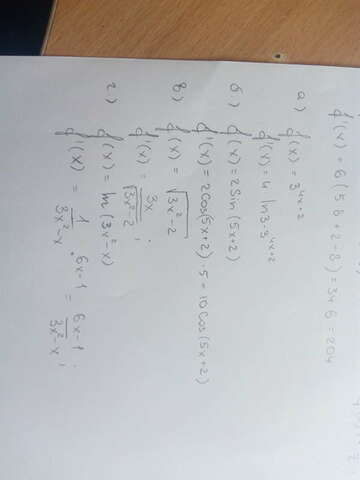 f'(4) = 6(5·8+2-8) = 34·6 = 204
а) f(x) = 3^{4x+2}
f'(x) = 4 ln3·3^{4x+2}
б) f(x) = 2Sin(5x+2)
f'(x) = 2cos(5x+2)·5 = 10cos(5x+2)
в) f(x) = √(3x²-2)
f'(x) = 3x/√(3x²-2);
г) f(x) = ln(3x²-x)
f'(x) = 1/(3x²-x) · 6x-1 = (6x-1)/(3x²-x);